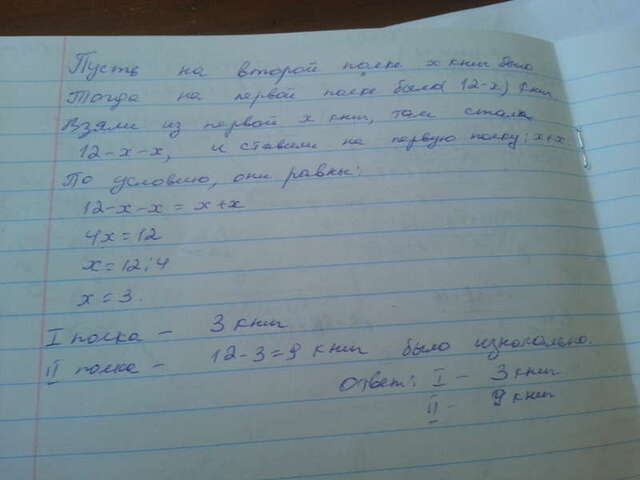 Пусть на второй полке x книг было
Тогда на первой полке было (12-x) книг
Взяли из первой x книг, там стало
12-x-x, и ставили на первую полку: x+x
По условию, они равны:
12-x-x = x+x
4x=12
x=12:4
x=3.
I полка - 3 книг
II полка - 12-3=9 книг было изначально.
Ответ: I - 3 книг
II - 9 книг